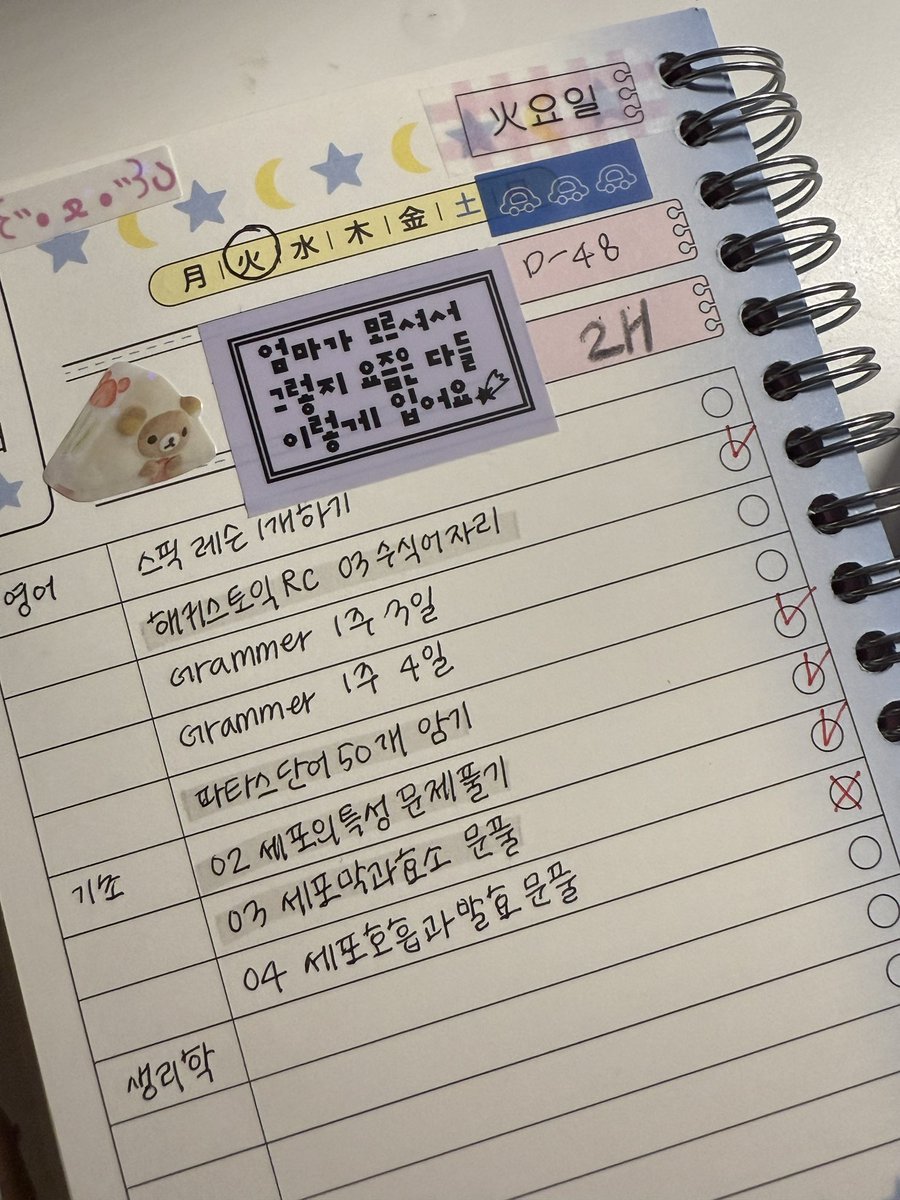 火요일
月 | 火 | 水 | 木 | 金 | 土
D-48
2H
엄마가 모르셔서
그렇지 요즘은 다들
이렇게 입어요
영어
스픽 레슨 1개하기
해커스토익 RC 03 수식어자리
Grammer 1주 3일
Grammer 1주 4일
파타스단어 50개 암기
기초
02 세포의특성 문제풀기
03 세포막과효소 문풀
04 세포호흡과발효 문풀
생리학